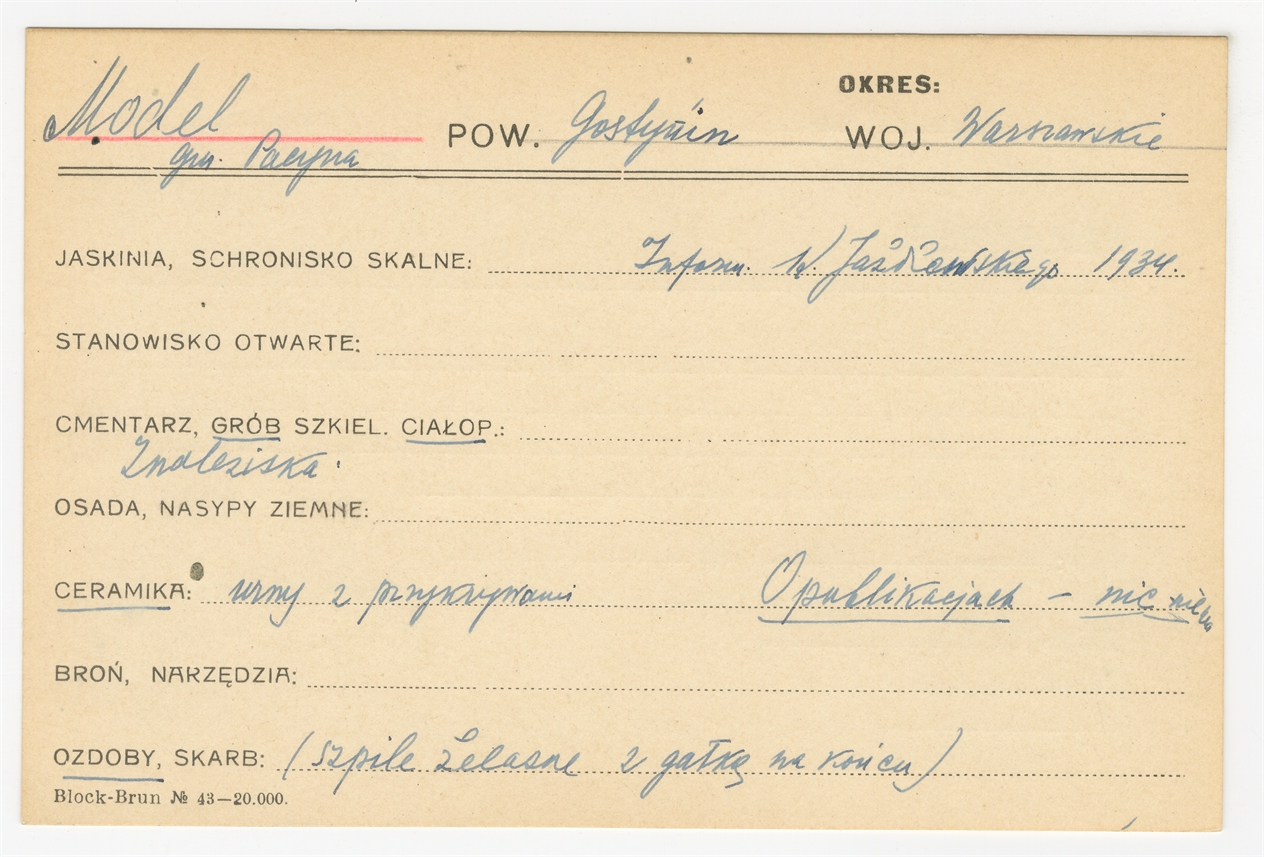 OKRES:
Model POW. Gostynin WOJ. Warszawskie
gm. Pacyna
JASKINIA, SCHRONISKO SKALNE: Inform. W. Jażdżewskiego 1934.
STANOWISKO OTWARTE:
CMENTARZ, GRÓB SZKIEL. CIAŁOP.:
Znaleziska.
OSADA, NASYPY ZIEMNE:
CERAMIKA: urny z przykrywami O publikacjach – nic nie
BROŃ, NARZĘDZIA:
OZDOBY, SKARB: (szpile żelazne z gałką na końcu)
Block-Brun № 43—20.000.